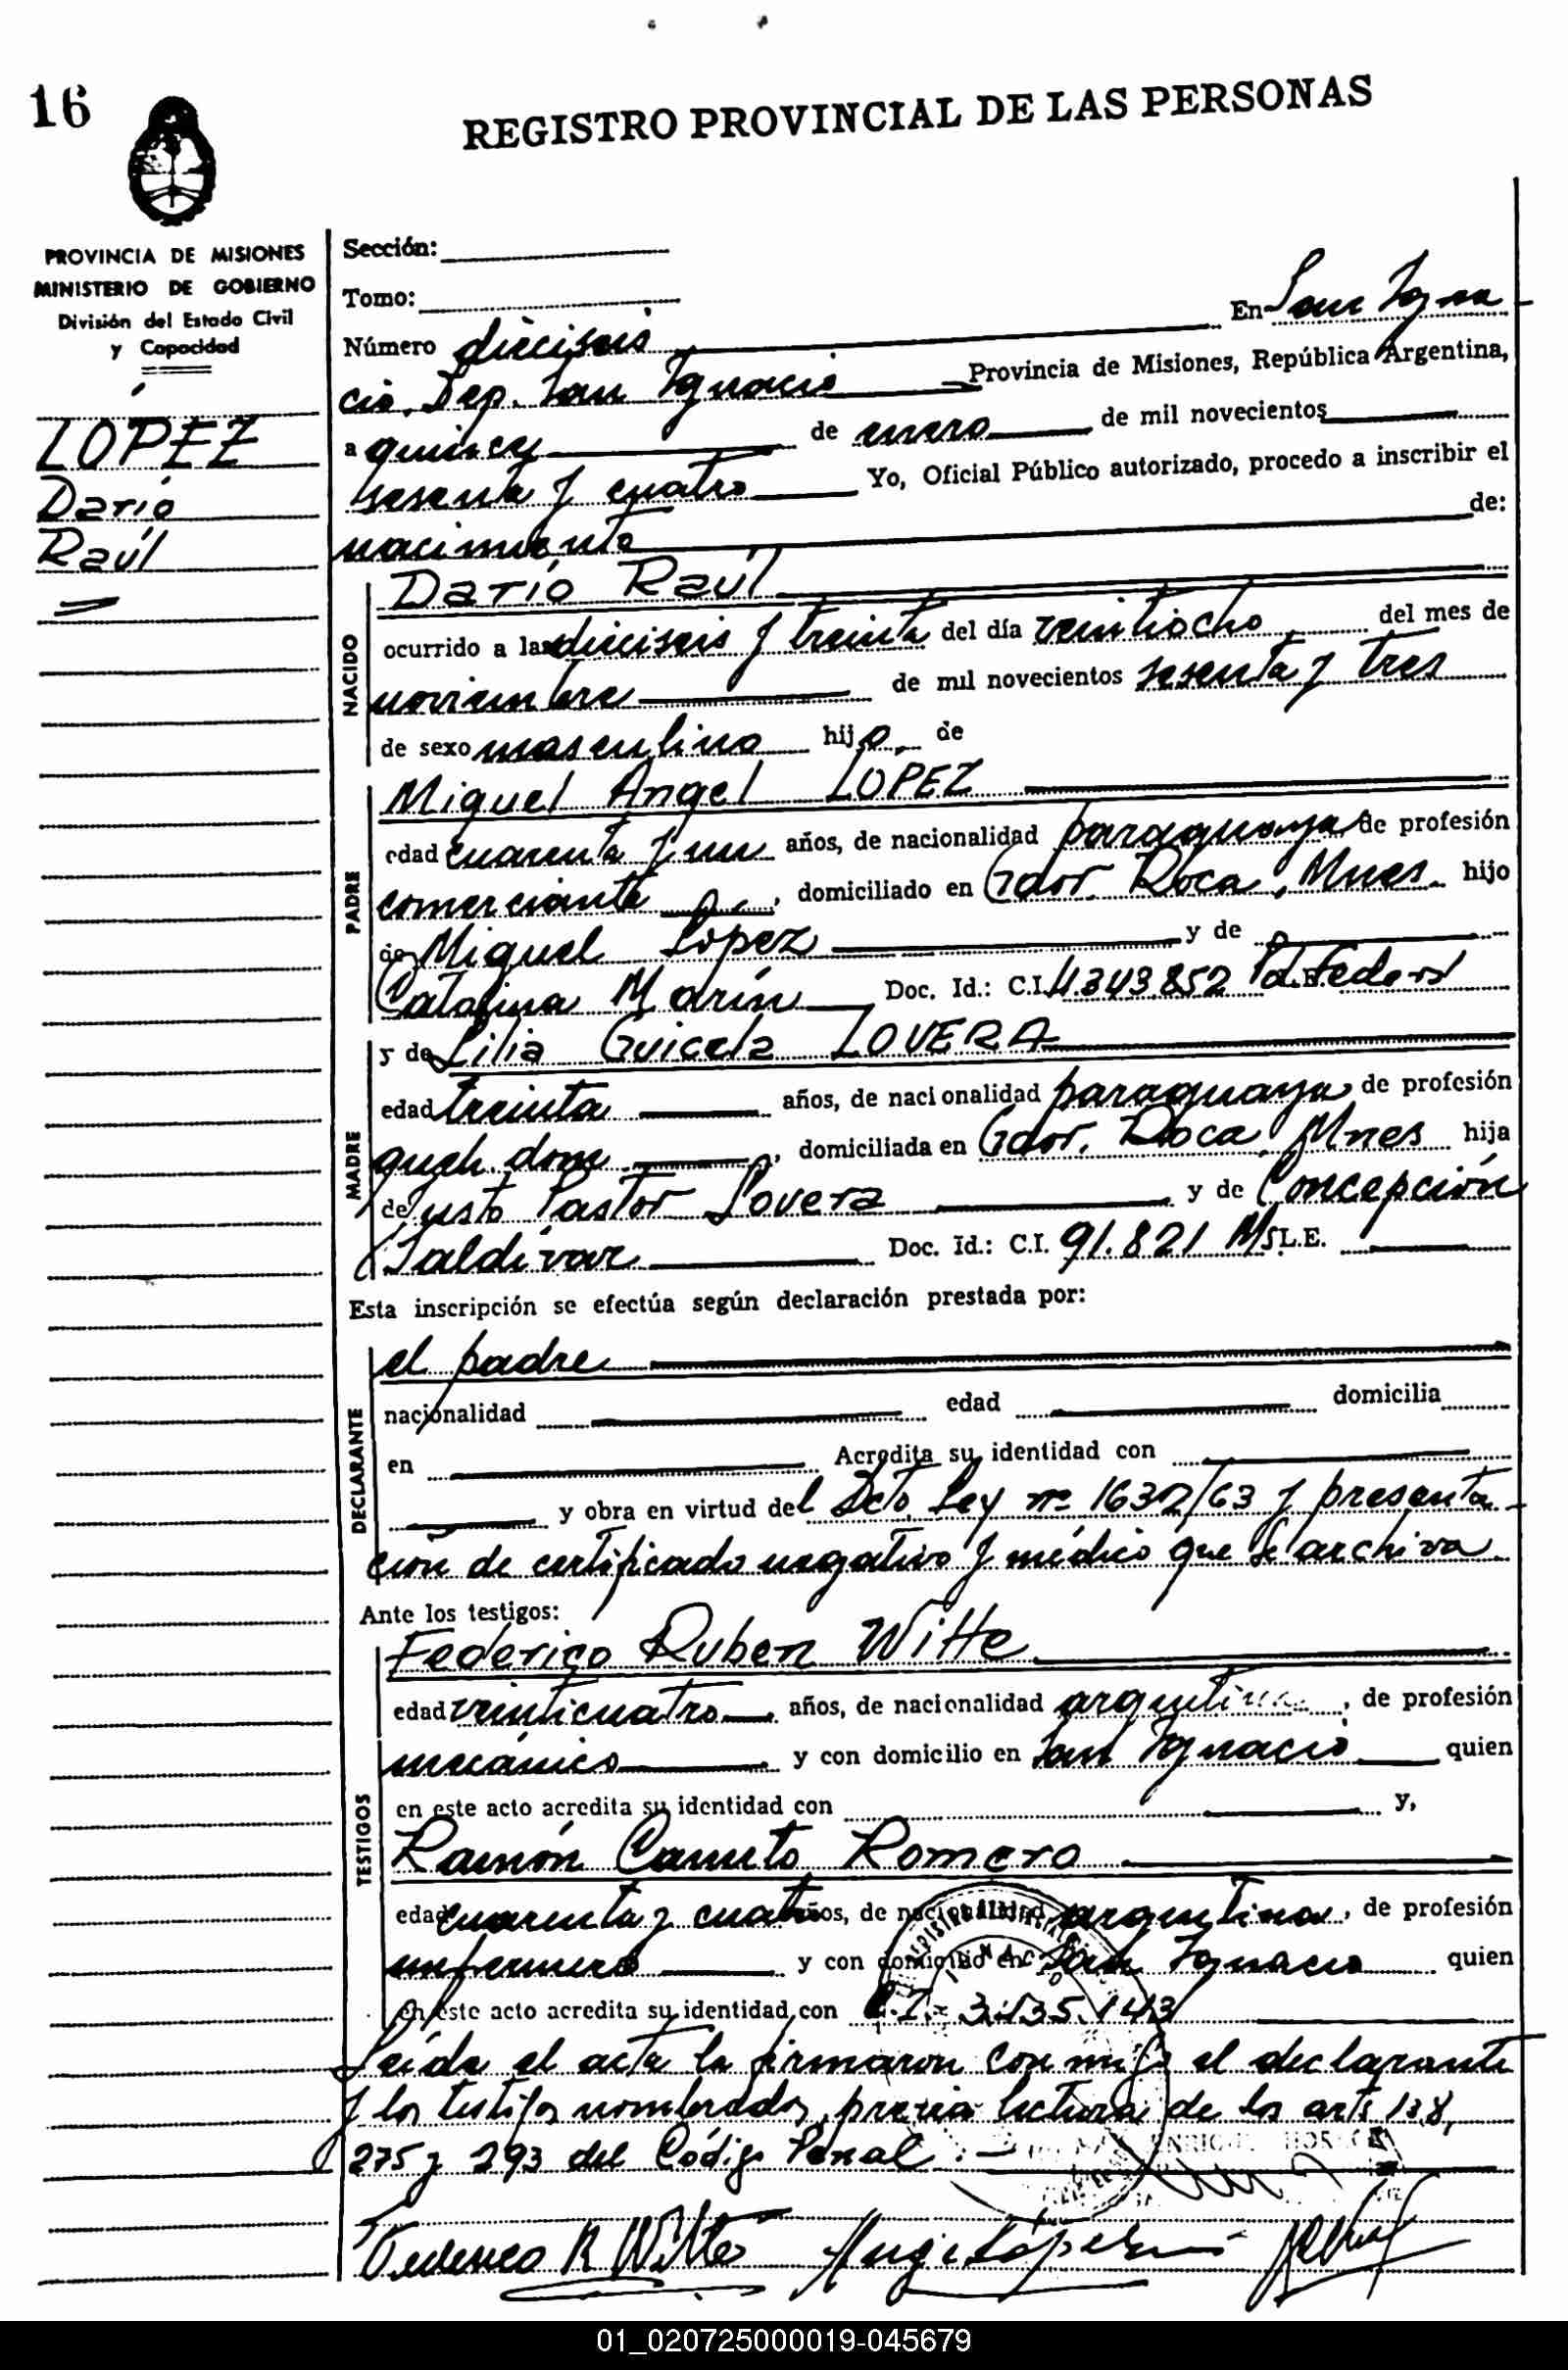 16
REGISTRO PROVINCIAL DE LAS PERSONAS
PROVINCIA DE MISIONES
MINISTERIO DE GOBIERNO
División del Estado Civil
y Capacidad
LOPEZ
Darío
Raúl
Sección:
Tomo:
Número dieciseis En San Igna-
cio. Dep. San Ignacio Provincia de Misiones, República Argentina,
a quince de enero de mil novecientos
sesenta y cuatro Yo, Oficial Público autorizado, procedo a inscribir el
nacimiento de:
NACIDO
Darío Raúl
ocurrido a las dieciseis y treinta del día veintiocho del mes de
noviembre de mil novecientos sesenta y tres
de sexo masculino hijo de
PADRE
Miguel Angel LOPEZ
edad cuarenta y un años, de nacionalidad paraguaya de profesión
comerciante, domiciliado en Gdor. Roca, Mnes. hijo
de Miguel López y de
Catalina Marín Doc. Id.: C.I. 4343.852 Federal
MADRE
y de Lilia Guicela LOVERA
edad treinta años, de nacionalidad paraguaya de profesión
queh. dom., domiciliada en Gdor. Roca, Mnes hija
de Justo Pastor Lovera y de Concepción
Saldívar Doc. Id.: C.I. 91.821 Ms L.E.
Esta inscripción se efectúa según declaración prestada por:
DECLARANTE
el padre
nacionalidad edad domicilia
en Acredita su identidad con
y obra en virtud del Dcto. Ley nº 1632/63 y presenta-
ción de certificado negativo y médico que se archiva.
Ante los testigos:
TESTIGOS
Federico Ruben Witte
edad veinticuatro años, de nacionalidad argentina, de profesión
mecánico y con domicilio en San Ignacio quien
en este acto acredita su identidad con y,
Ramón Canuto Romero
edad cuarenta y cuatro años, de nacionalidad argentina, de profesión
enfermero y con domicilio en San Ignacio quien
en este acto acredita su identidad con C.I. 3.135.143
Leída el acta la firmaron conmigo el declarante
y los testigos nombrados, previa lectura de los arts 138,
275 y 293 del Código Penal.-
Federico R Witte
01_020725000019-045679